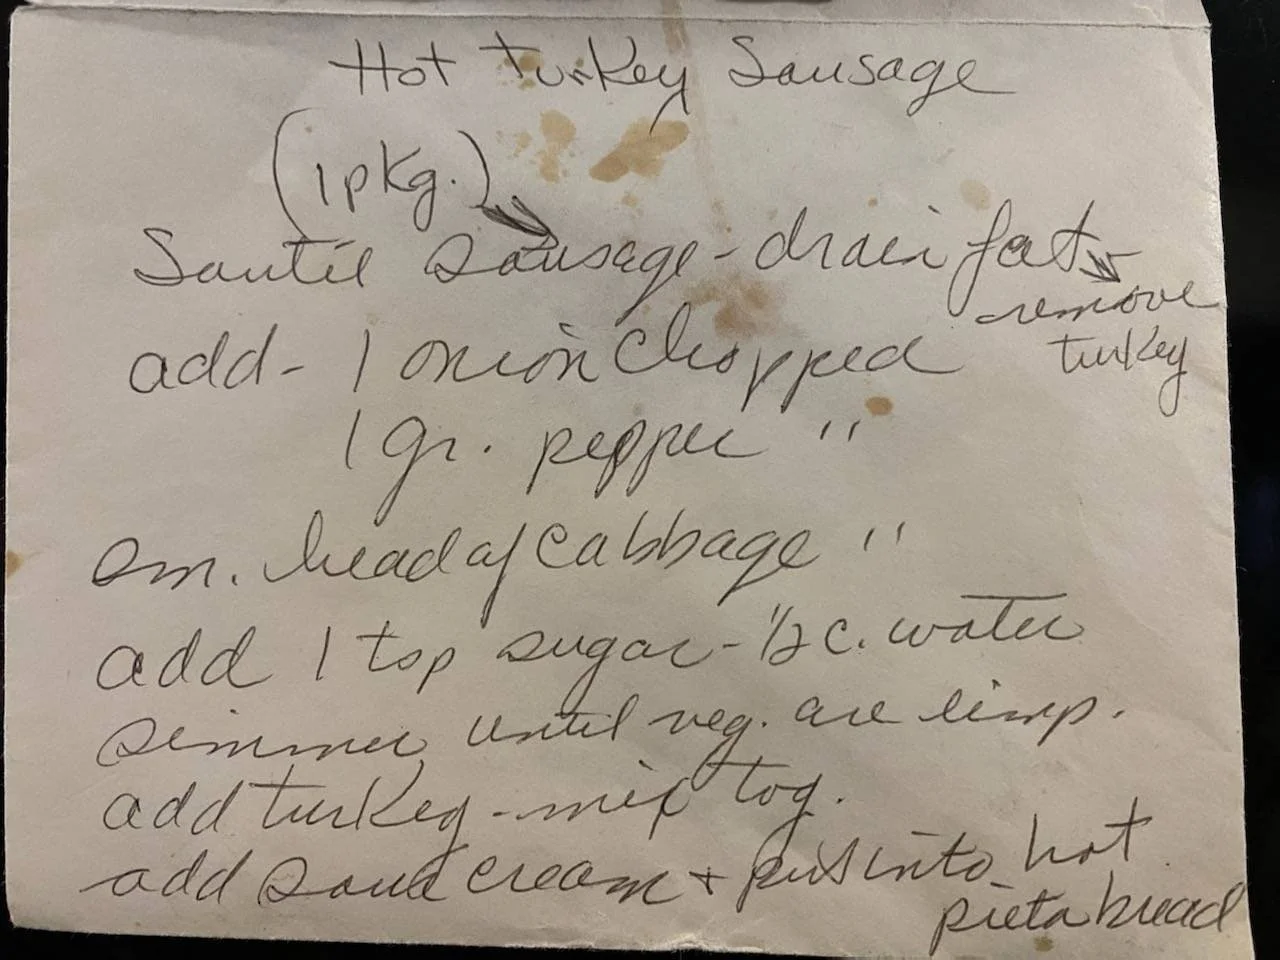 Hot Turkey Sausage
(1 pkg.)
Sauté sausage - drain fat
remove
turkey
add - 1 onion chopped
1 gr. pepper "
sm. head of cabbage "
add 1 tsp sugar - 1/2 c. water
simmer until veg. are limp.
add turkey - mix tog.
add sour cream + put into hot
pieta bread